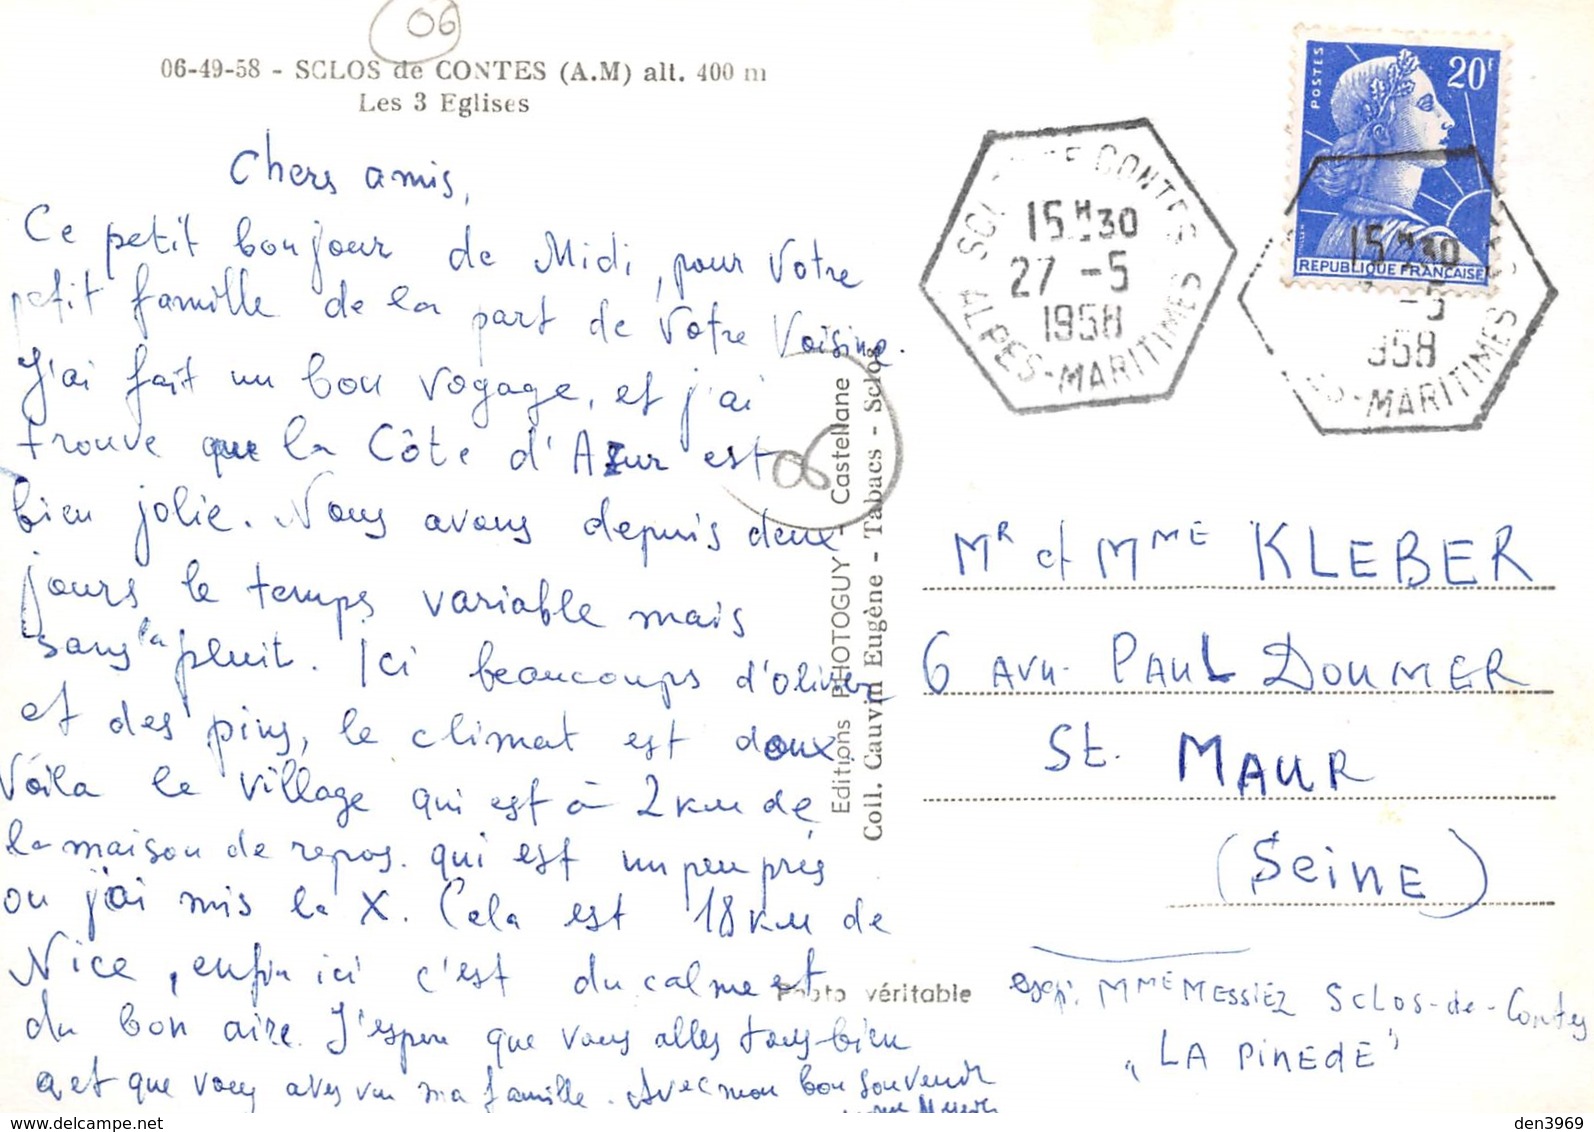 06
06-49-58 - SCLOS de CONTES (A.M) alt. 400 m
Les 3 Eglises
Chers amis,
Ce petit bonjour de Midi, pour Votre
petit famille de la part de Votre Voisine.
J'ai fait un bon voyage, et j'ai
trouve que la Côte d'Azur est
bien jolie. Nous avons depuis deux
jours le temps variable mais
sans la pluit. Ici beaucoups d'olivier
et des pins, le climat est doux
Voila le village qui est à 2 km de
la maison de repos. qui est un peu près
ou j'ai mis la X. Cela est 18 km de
Nice, enfin ici c'est du calme et
du bon aire. J'espere que vous alles tous bien
et que vous aves vu ma famille. Avec mon bon souvenir
Editions PHOTOGUY - Castellane
Coll. Cauvin Eugène - Tabacs - Sclos
06
Photo véritable
POSTES
20F
REPUBLIQUE FRANÇAISE
SCL DE CONTES
15H30
27 -5
1958
ALPES-MARITIMES
15H30
-5
958
ES-MARITIMES
Mr et Mme KLEBER
6 AVN. PAUL DOUMER
St. MAUR
(SEINE)
exp. Mme MESSIEZ SCLOS-de-Contes
"LA PINEDE"
delcampe.net
den3969